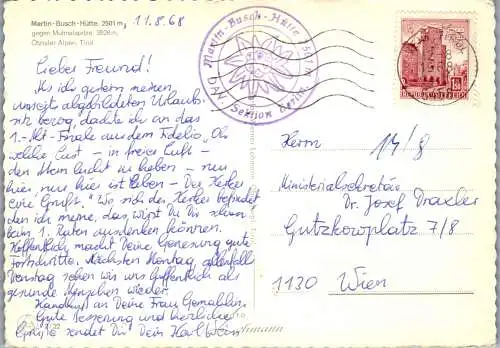 Martin-Busch-Hütte, 2501 m, 11.8.68
gegen Mutmalspitze, 3528 m,
Ötztaler Alpen, Tirol
Martin-Busch-Hütte 2501m
D.A.V. Sektion Berlin
REPUBLIK ÖSTERREICH
Lieber Freund!
Als ich gestern meinen
umseit abgebildeten Urlaubs-
sitz bezog, dachte ich an das
1.-Akt-Finale aus dem Fidelio. Oh
welche Lust – in freier Luft –
den Atem leicht zu heben – nur
hier, nur hier ist Leben – Der Kerker
eine Gruft." Wo sich der Kerker befindet
den ich meine, das wirst Du Dir schon
beim 1. Raten ausdenken können.
Hoffentlich macht Deine Genesung gute
Fortschritte. Nächsten Montag, allenfalls
Dienstag sehen wir uns hoffentlich als
gesunde Menschen wieder.
Handkuss an Deine Frau Gemahlin
Gute Besserung und herzliche
Grüße sendet Dir Dein
Herrn 14/8
Ministerialsekretär
Dr. Josef Dracler
Gutzkowplatz 7/8
1130 Wien